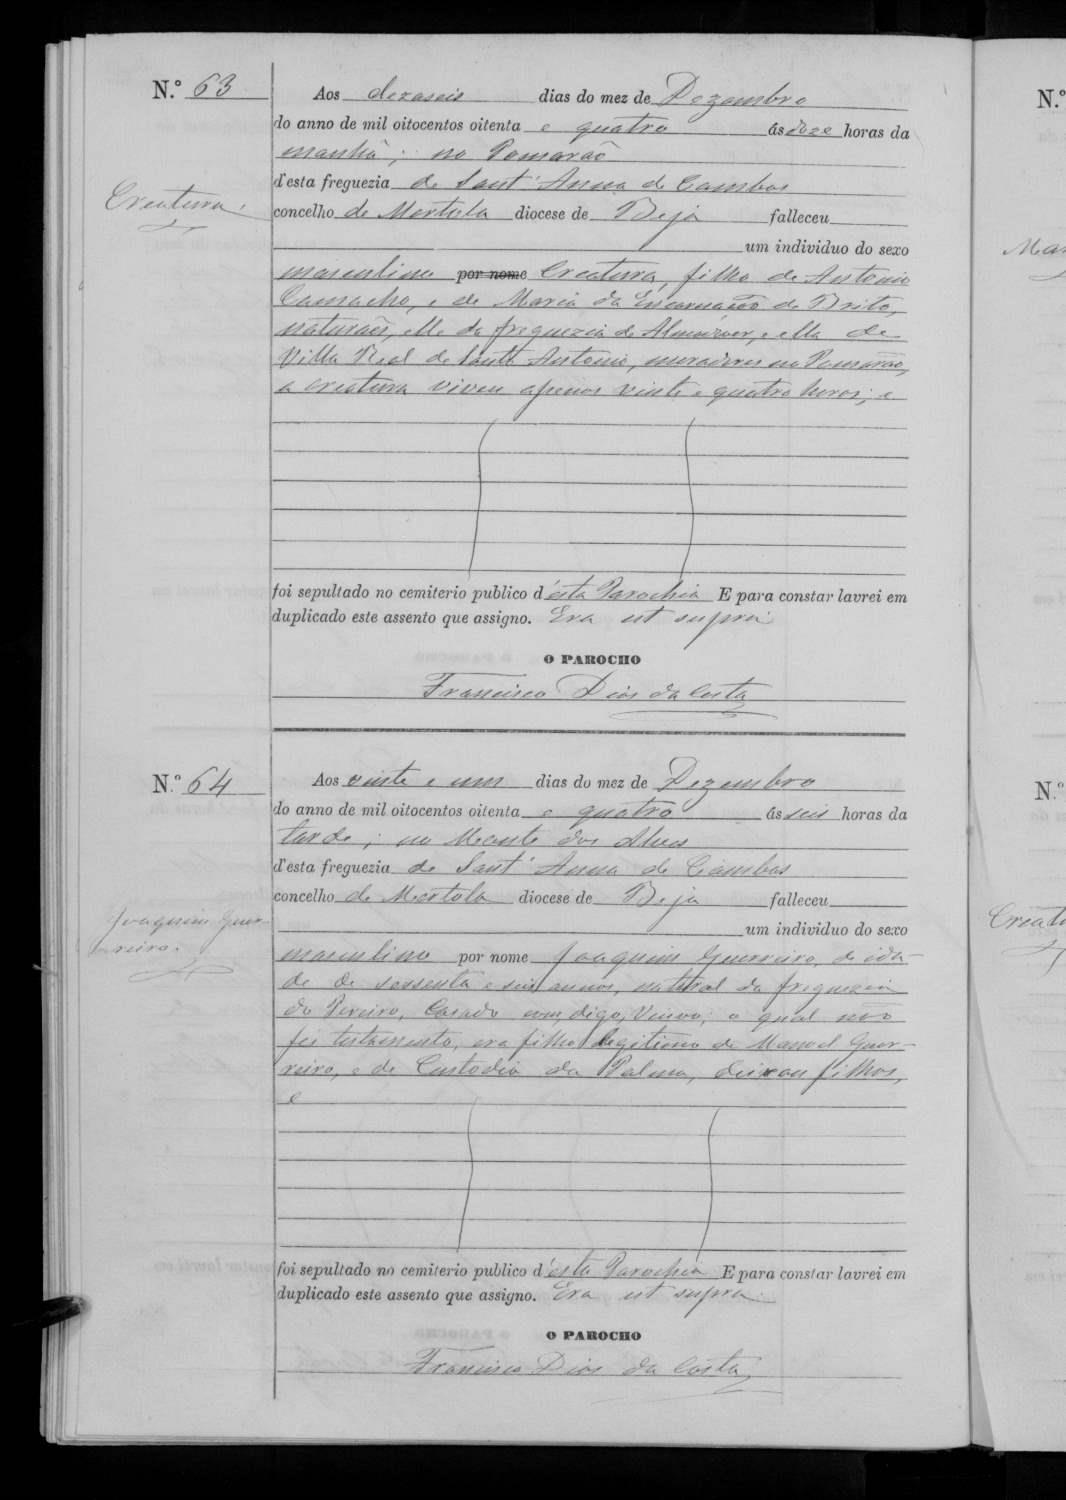 N.º 63
Aos dezaseis dias do mez de Dezembro
do anno de mil oitocentos oitenta e quatro ás doze horas da
manhã; no Pomarão
d'esta freguezia de Sant' Anna de Cambas
Creatura.
concelho de Mertola diocese de Beja falleceu
um individuo do sexo
masculino por nome Creatura, filho de Antonio
Camacho, e de Maria da Encarnação de Brito,
naturaes, elle da freguezia de e ella de
Villa Real de Santo Antonio, moradores no Pomarão,
a creatura viveu apenas vinte e quatro horas; e
foi sepultado no cemiterio publico d'ésta Parochia E para constar lavrei em
duplicado este assento que assigno. Era ut supra.
O PAROCHO
Francisco Dias da Costa
N.º 64
Aos vinte e um dias do mez de Dezembro
do anno de mil oitocentos oitenta e quatro ás seis horas da
tarde; no Monte dos Alves
d'esta freguezia de Sant' Anna de Cambas
concelho de Mertola diocese de Beja falleceu
Joaquim Guer-
reiro.
um individuo do sexo
masculino por nome Joaquim Guerreiro, de ida-
de de sessenta e seis annos, natural da freguezia
do Pereiro, Casado com, digo, Viuvo; o qual não
fes testamento, era filho legitimo de Manoel Guer-
reiro, e de Custodia da Palma, deixou filhos,
e
foi sepultado no cemiterio publico d'ésta Parochia E para constar lavrei em
duplicado este assento que assigno. Era ut supra.
O PAROCHO
Francisco Dias da Costa
N.º
Mar
N.º
Creatu